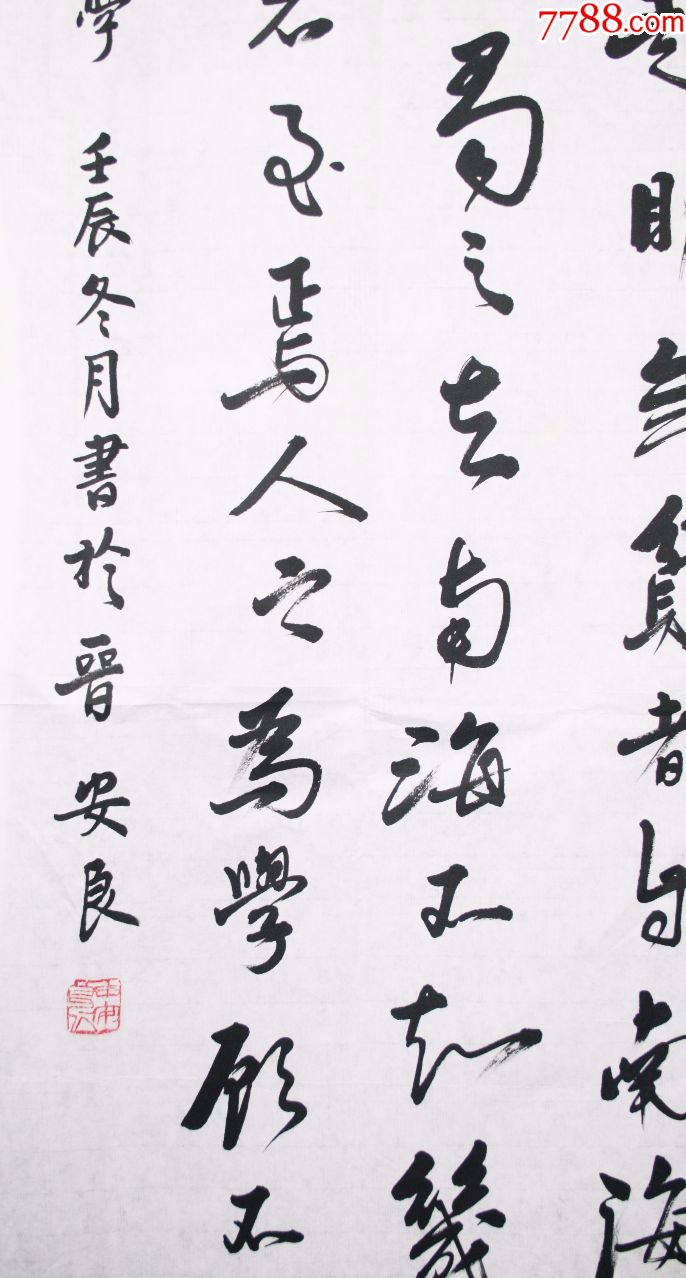 7788.com
明年貧者自南海
蜀之去南海不知幾
至焉人之為學顧不
學 壬辰冬月書於晉 安良